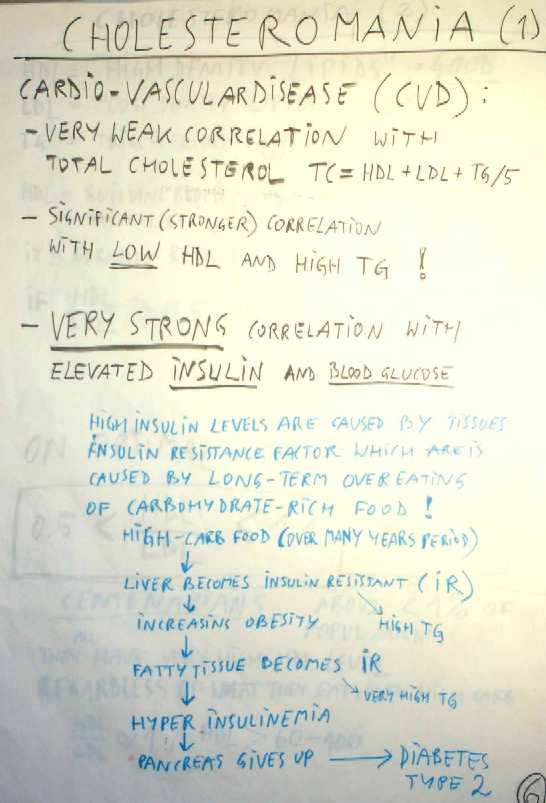 CHOLESTEROMANIA (1)
CARDIO-VASCULAR DISEASE (CVD):
- VERY WEAK CORRELATION WITH
TOTAL CHOLESTEROL TC = HDL + LDL + TG/5
- SIGNIFICANT (STRONGER) CORRELATION
WITH LOW HDL AND HIGH TG !
- VERY STRONG CORRELATION WITH
ELEVATED INSULIN AND BLOOD GLUCOSE
HIGH INSULIN LEVELS ARE CAUSED BY TISSUES
INSULIN RESISTANCE FACTOR WHICH IS
CAUSED BY LONG-TERM OVEREATING
OF CARBOHYDRATE-RICH FOOD !
HIGH-CARB FOOD (OVER MANY YEARS PERIOD)
↓
LIVER BECOMES INSULIN RESISTANT (IR)
↓
INCREASING OBESITY ↘ HIGH TG
↓
FATTY TISSUE BECOMES IR
↓ ↘ VERY HIGH TG
HYPER INSULINEMIA
↓
PANCREAS GIVES UP → DIABETES
TYPE 2
6